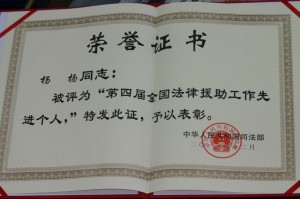 荣誉证书
杨 杨同志：
被评为“第四届全国法律援助工作先
进个人，”特发此证，予以表彰。
中华人民共和国司法部
二〇 二月